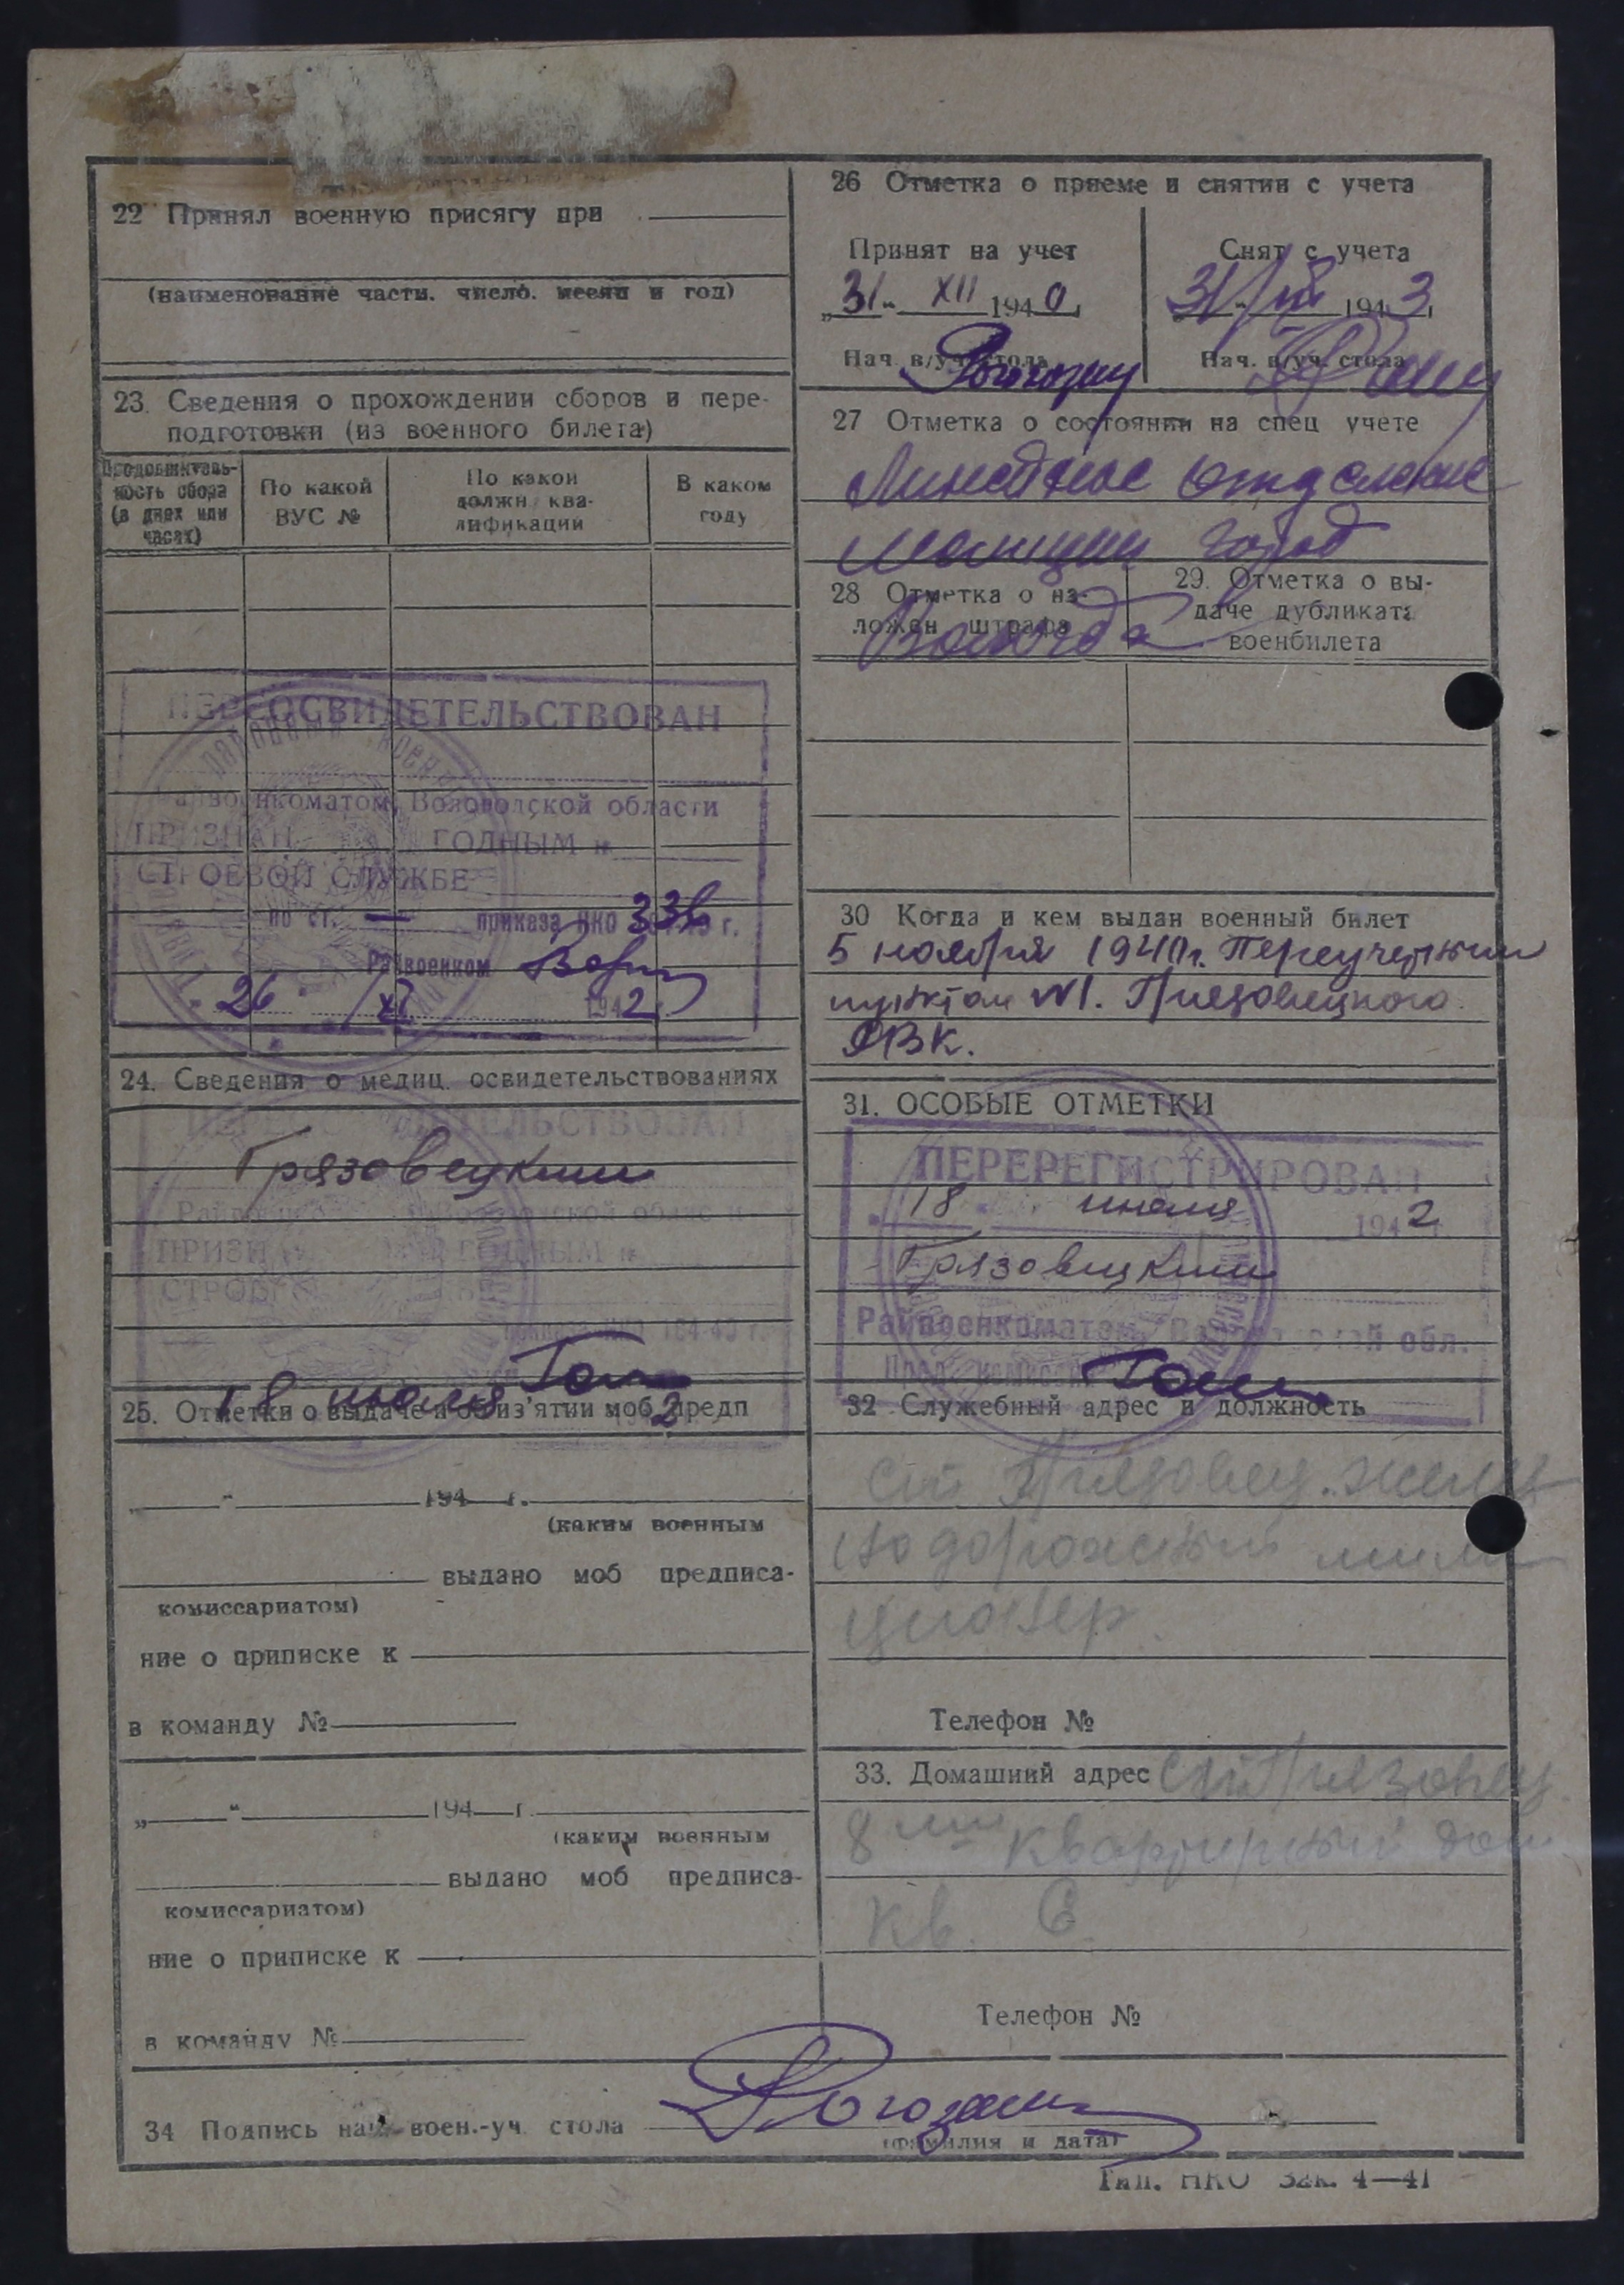 22 Принял военную присягу при
(наименование части. число. месяц и год)
23. Сведения о прохождении сборов и пере-
подготовки (из военного билета)
Продолжитель-
ность сбора
(в днех или
часах)
По какой
ВУС №
По какои
должн ква-
лификации
В каком
году
ПЕРЕОСВИДЕТЕЛЬСТВОВАН
Райвоенкоматом, Вологодской области
ПРИЗНАН ГОДНЫМ к
СТРОЕВОЙ СЛУЖБЕ
по ст. — приказа НКО 336 г.
Райвоенком
26 XI 1942 г.
24. Сведения о медиц. освидетельствованиях
Грязовецким
ПРИЗНАН ГОДНЫМ к
приказа НКО 184-40 г.
18 июля 2
25. Отметки о выдаче и об из'ятии моб предп
„ “ 194 г.
(каким военным
выдано моб предписа-
комиссариатом)
ние о приписке к
в команду №
„ “ 194 г.
(каким военным
выдано моб предписа-
комиссариатом)
ние о приписке к
в команду №
26 Отметка о приеме и снятии с учета
Принят на учет
„31“ XII 1940
Нач. в/уч. стола
Снят с учета
31 1943
Нач. в/уч. стола
27 Отметка о состоянии на спец учете
Линейное отделение
милиции город
Вологда
28 Отметка о на-
ложен штрафа
29. Отметка о вы-
даче дубликата
военбилета
30 Когда и кем выдан военный билет
5 ноября 1940г. Переучетным
пунктом №1. Грязовецкого
РВК.
31. ОСОБЫЕ ОТМЕТКИ
ПЕРЕРЕГИСТРИРОВАН
18 июля 1942 г.
Грязовецким
Райвоенкоматом, Вологодской обл.
Пред. комиссии
32 Служебный адрес и должность
ст Грязовец. желез
нодорожный мили
ционер.
Телефон №
33. Домашний адрес ст. Грязовец
8 ми квартирный дом
кв. 6
Телефон №
34 Подпись нач. воен.-уч. стола Рогозин
(фамилия и дата)
Тип. НКО Зак. 4—41